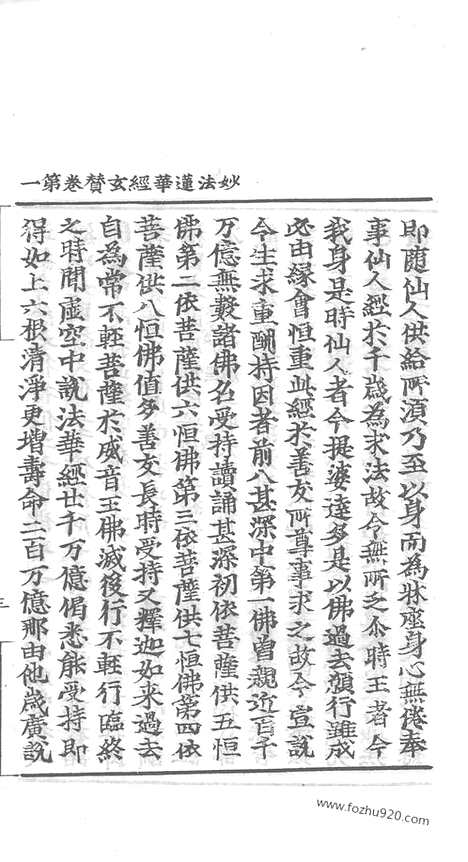 妙法蓮華經玄賛卷第一
即隨仙人供給所須乃至以身而為牀座身心無倦奉
事仙人經於千歲為求法故令無所乏尒時王者今
我身是時仙人者今提婆達多是以佛過去願行雖成
必由緣會恒重此經於善友所尊事求之故今宣說
今生求重酬持因者前八甚深中第一佛曾親近百千
万億無數諸佛名受持讀誦甚深初依菩薩供五恒
佛第二依菩薩供六恒佛第三依菩薩供七恒佛第四依
菩薩供八恒佛值多善友長時受持又釋迦如來過去
自為常不輕菩薩於威音王佛滅後行不輕行臨終
之時聞虛空中說法華經廿千万億偈悉能受持即
得如上六根清淨更增壽命二百万億那由他歲廣說
三
www.fozhu920.com